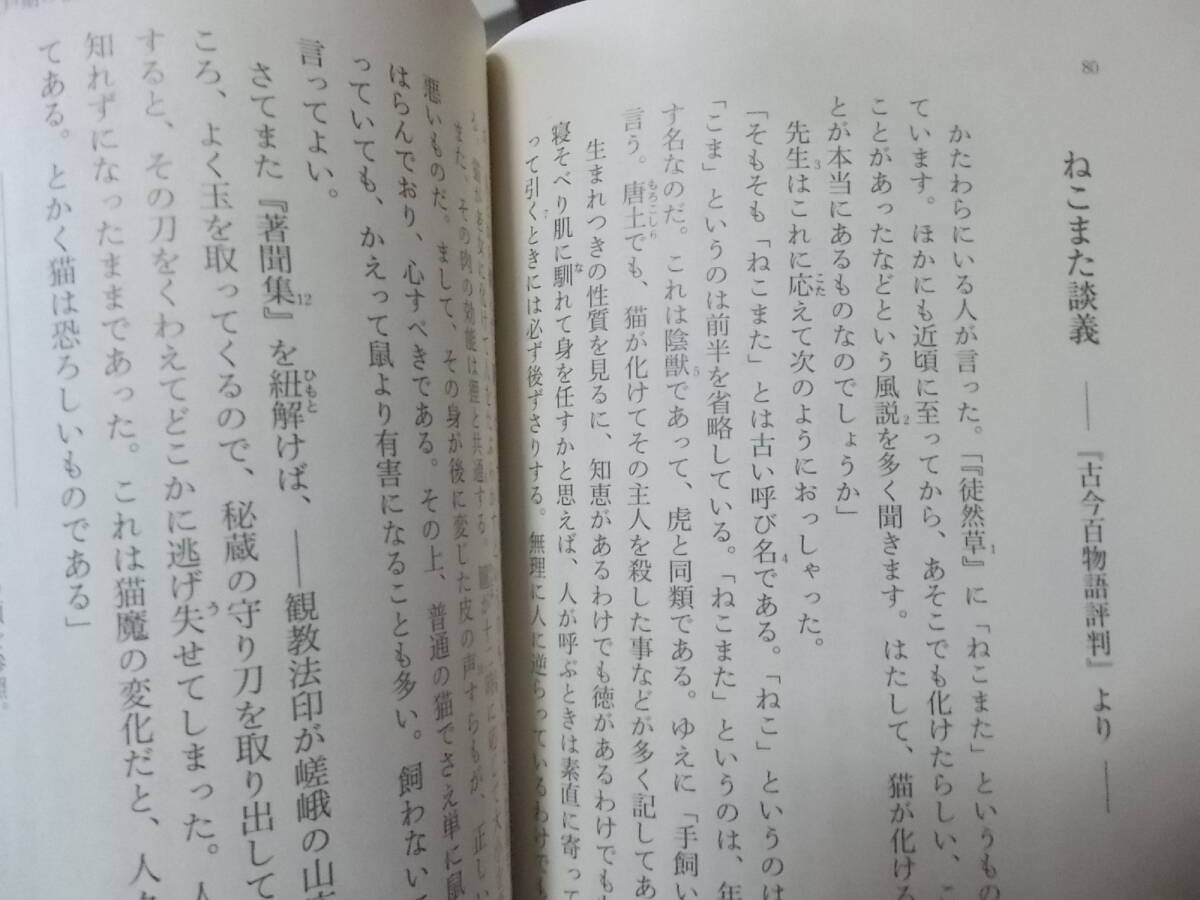 80
ねこまた談義 ――『古今百物語評判』より――
かたわらにいる人が言った。「『徒然草』1に「ねこまた」というもの
ています。ほかにも近頃に至ってから、あそこでも化けたらしい、こ
ことがあったなどという風説2を多く聞きます。はたして、猫が化ける
とが本当にあるものなのでしょうか」
先生3はこれに応えて次のようにおっしゃった。
こた
「そもそも「ねこまた」とは古い呼び名4である。「ねこ」というのは
「こま」というのは前半を省略している。「ねこまた」というのは、年
す名なのだ。これは陰獣5であって、虎と同類である。ゆえに「手飼い
言う。唐土でも、猫が化けてその主人を殺した事などが多く記してあ
もろこし6
生まれつきの性質を見るに、知恵があるわけでも徳があるわけでも
寝そべり肌に馴れて身を任すかと思えば、人が呼ぶときは素直に寄って
な
って引く7ときには必ず後ずさりする。無理に人に逆らっているわけでも
また、その肉の効能は
と共通する。
その身が後に変じた皮の声すらもが、正しい
悪いものだ。まして、
その上、普通の猫でさえ単に鼠
はらんでおり、心すべきである。
っていても、かえって鼠より有害になることも多い。飼わない
言ってよい。
さてまた『著聞集』12を紐解けば、――観教法印が嵯峨の山
ひもと
ころ、よく玉を取ってくるので、秘蔵の守り刀を取り出して
すると、その刀をくわえてどこかに逃げ失せてしまった。人
う
知れずになったままであった。これは猫魔の変化だと、人々
てある。とかく猫は恐ろしいものである」